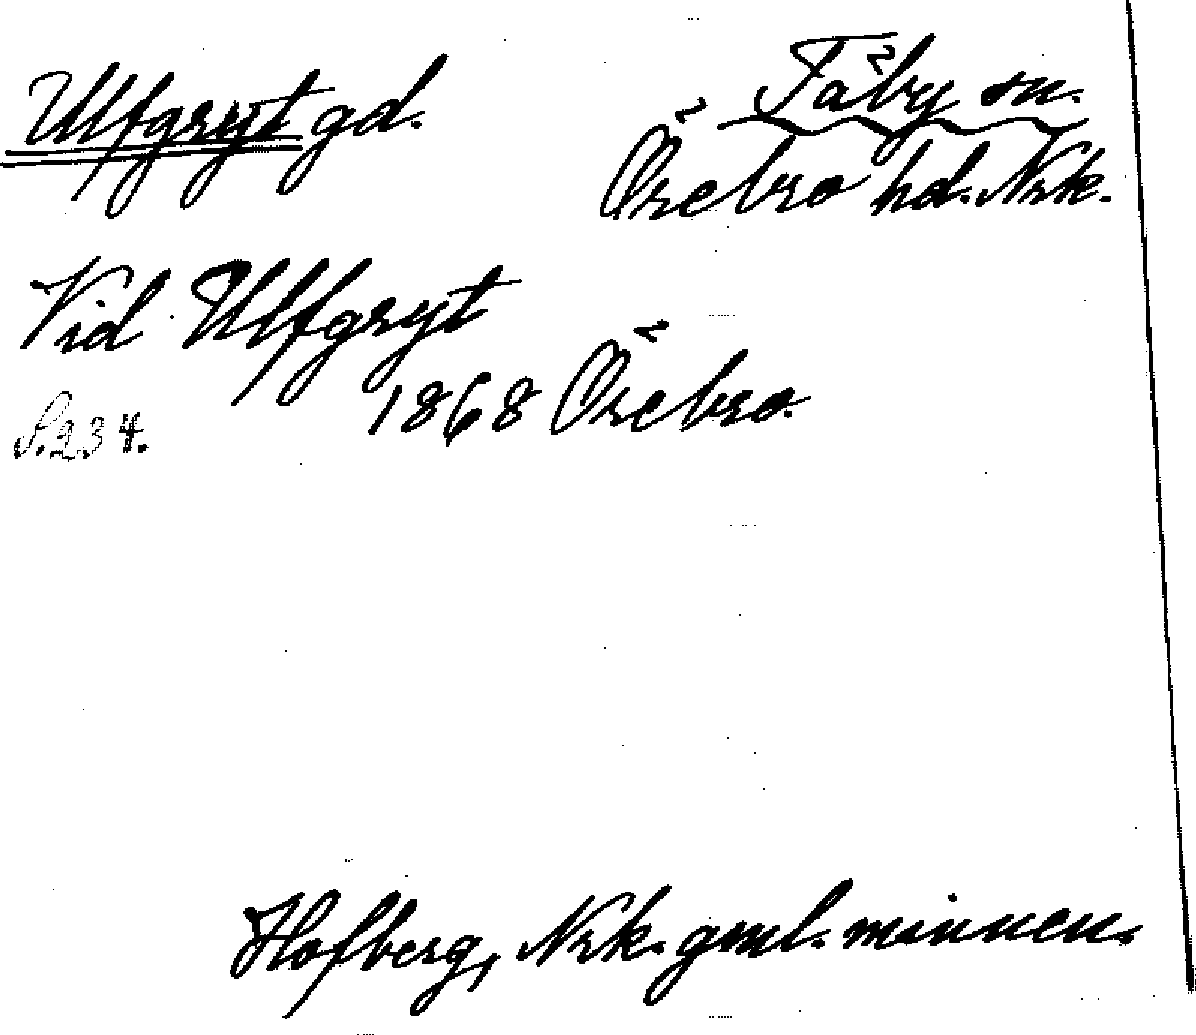 Ulfgryt gd.
Täby sn.
Örebro hd. Nrk.
Vid Ulfgryt
1868 Örebro.
S. 234.
Hofberg, Nrk. gml. minnen.